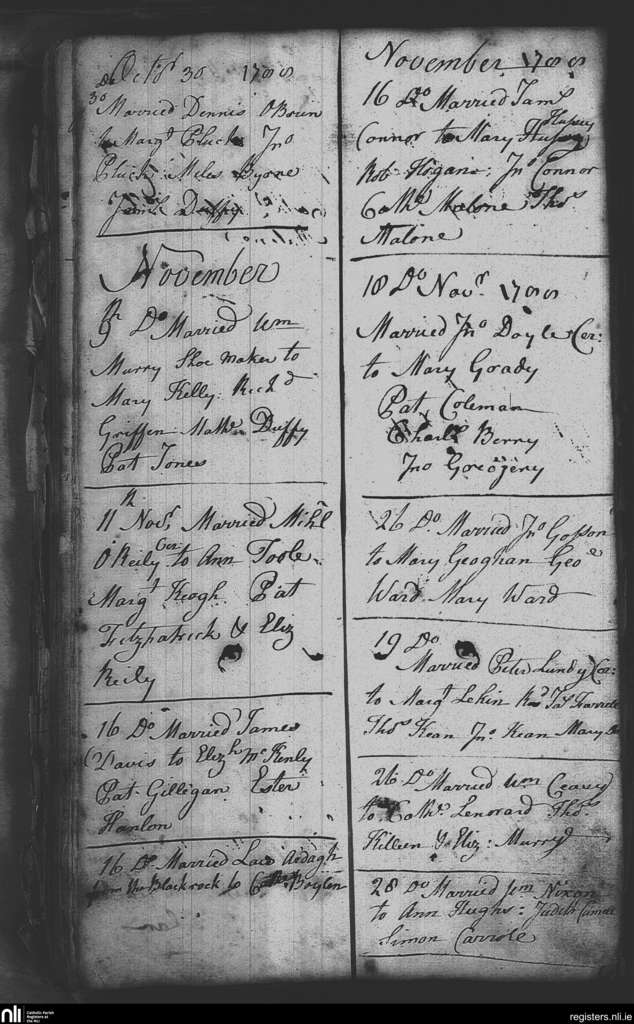 Octbr 30 1788
30 Married Dennis OBrien
to Margt Pluck Jno
Pluck Miles Byrne
Duffy
November
9th Do Married Wm
Murry Shoe maker to
Mary Kelly: Richd
Griffen Mathw Duffy
Pat Jones
11th Novr Married Mihl
O Reily Cer: to Ann Toole
Margt Keogh Pat
Fitzpatrick & Eliz
Reily
16 Do Married James
Davis to Elizh McKenly
Pat Gilligan Ester
Hanlon
16 Do Married Ardagh
from the Blackrock to Boylen
November 1788
16 Do Married Jams
Connor to Mary Hussey
Rob Hogans: Jno Connor
Cathe Malone Thos
Malone
18 Do Novr 1788
Married Jno Doyle Cer:
to Mary Grady
Pat Coleman
Charls Berry
Jno Gregory
26 Do Married Jno Gosson
to Mary Geoghan Geoe
Ward Mary Ward
19 Do
Married Peter Lundy Cer:
to Margt Jas Farrell
Thos Kean Jno Kean Mary
26 Do Married Wm
to Cathe Lennard Thos
Killeen & Eliz: Murry
28 Do Married Wm Nixon
to Ann Hughs: Judith
Simon Carrole
nli Catholic Parish Registers at the NLI
registers.nli.ie